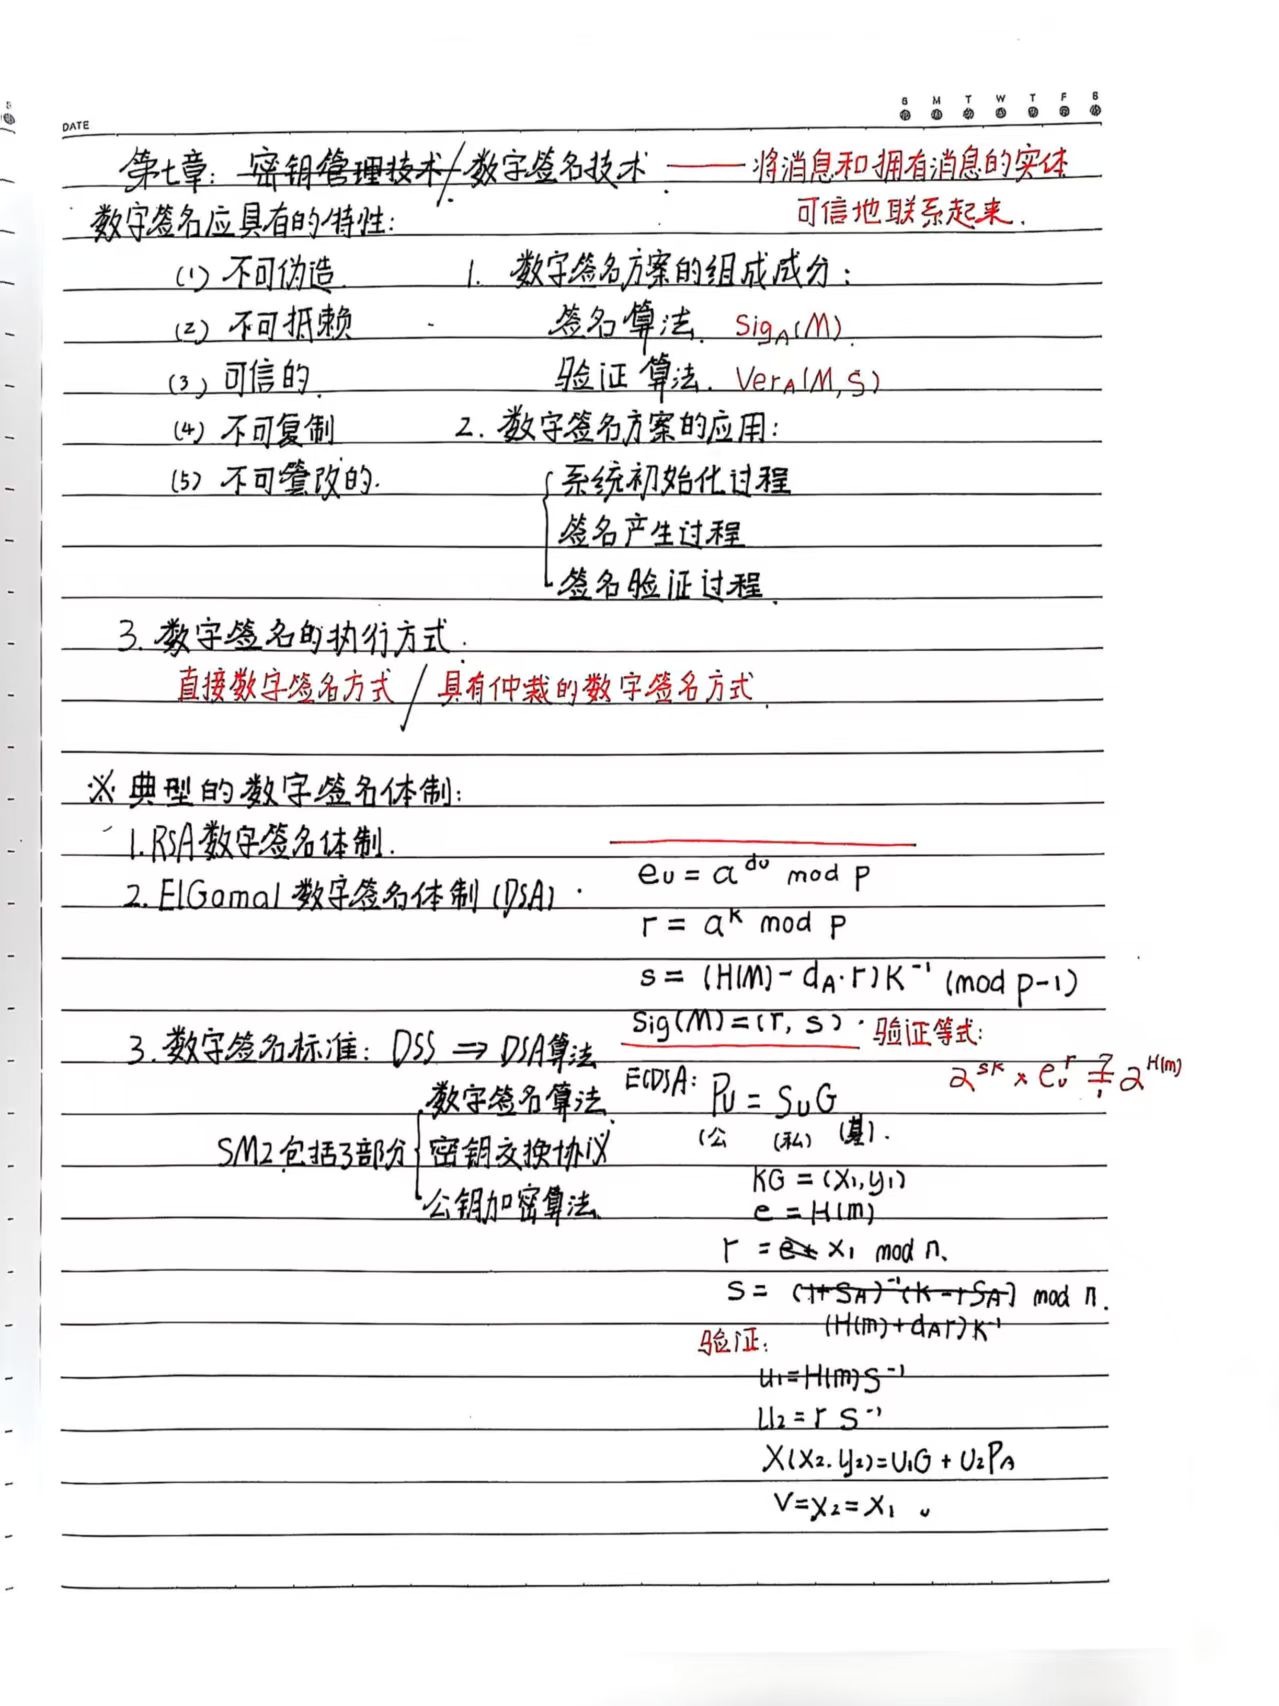 DATE
S M T W T F S
第七章：密钥管理技术/数字签名技术 —— 将消息和拥有消息的实体
可信地联系起来.
数字签名应具有的特性：
(1) 不可伪造. 1. 数字签名方案的组成成分：
(2) 不可抵赖 签名算法. SigA(M).
(3) 可信的. 验证算法. VerA(M,S)
(4) 不可复制 2. 数字签名方案的应用：
(5) 不可篡改的. 系统初始化过程
签名产生过程
签名验证过程.
3. 数字签名的执行方式.
直接数字签名方式 / 具有仲裁的数字签名方式.
※ 典型的数字签名体制：
1. RSA数字签名体制.
2. ElGamal 数字签名体制 (DSA).
eu = a^du mod p
r = a^k mod p
s = (H(M) - dA·r)K⁻¹ (mod p-1)
Sig(M) = (r, s). 验证等式：
a^sk × eu^r ≟ a^H(m)
3. 数字签名标准：DSS ⇒ DSA算法
SM2包括3部分
数字签名算法.
密钥交换协议
公钥加密算法.
ECDSA: Pu = SuG
(公 (私) (基).
KG = (x₁, y₁)
e = H(m)
r = e+ x₁ mod n.
s = (1+SA)⁻¹(k-rSA) mod n.
(H(m)+dAr)K⁻¹
验证：
u₁=H(m)S⁻¹
u₂=r S⁻¹
X(x₂.y₂)=u₁G + u₂PA
V=x₂=x₁.